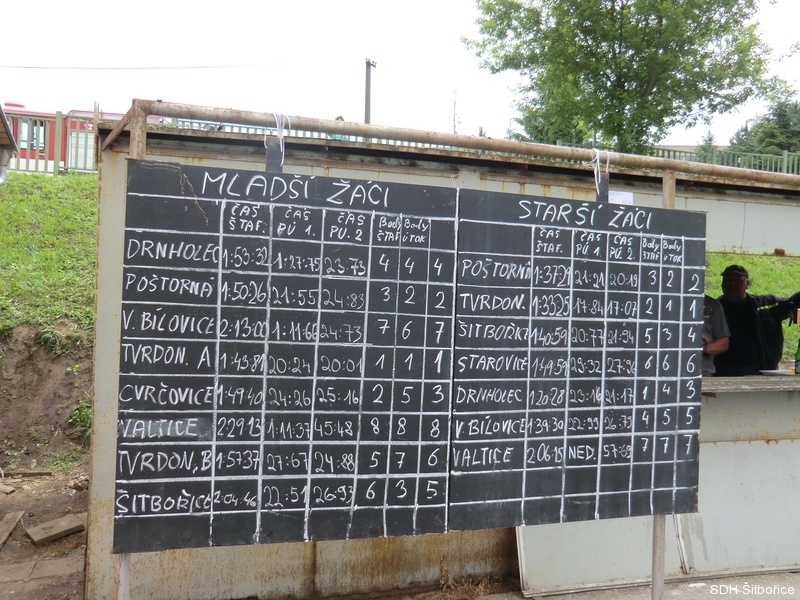 MLADŠÍ ŽÁCI
ČAS ŠTAF. ČAS PÚ 1. ČAS PÚ. 2 Body ŠTAF Body ÚTOK
DRNHOLEC 1:53:32 1:27:75 23:73 4 4 4
POŠTORNÁ 1:50:26 21:55 24:83 3 2 2
V. BÍLOVICE 2:13:00 1:11:66 24:73 7 6 7
TVRDON. A 1:43:81 20:24 20:01 1 1 1
CVRČOVICE 1:49:40 24:26 25:16 2 5 3
VALTICE 2:29:13 1:11:37 45:48 8 8 8
TVRDON, B 1:57:37 27:67 24:88 5 7 6
ŠITBOŘICE 2:04:46 22:51 26:93 6 3 5
STARŠÍ ŽÁCI
ČAS ŠTAF. ČAS PÚ 1. ČAS PÚ. 2 Body ŠTAF Body ÚTOK
POŠTORNÁ 1:37:29 21:21 20:19 3 2 2
TVRDON. 1:33:25 17:84 17:07 2 1 1
ŠITBOŘICE 1:40:59 20:77 21:94 5 3 4
STAROVICE 1:49:59 29:32 27:96 6 6 6
DRNHOLEC 1:26:28 23:16 21:17 1 4 3
V. BÍLOVICE 1:39:30 22:99 26:79 4 5 5
VALTICE 2:06:15 NED. 57:69 7 7 7
SDH Šitbořice